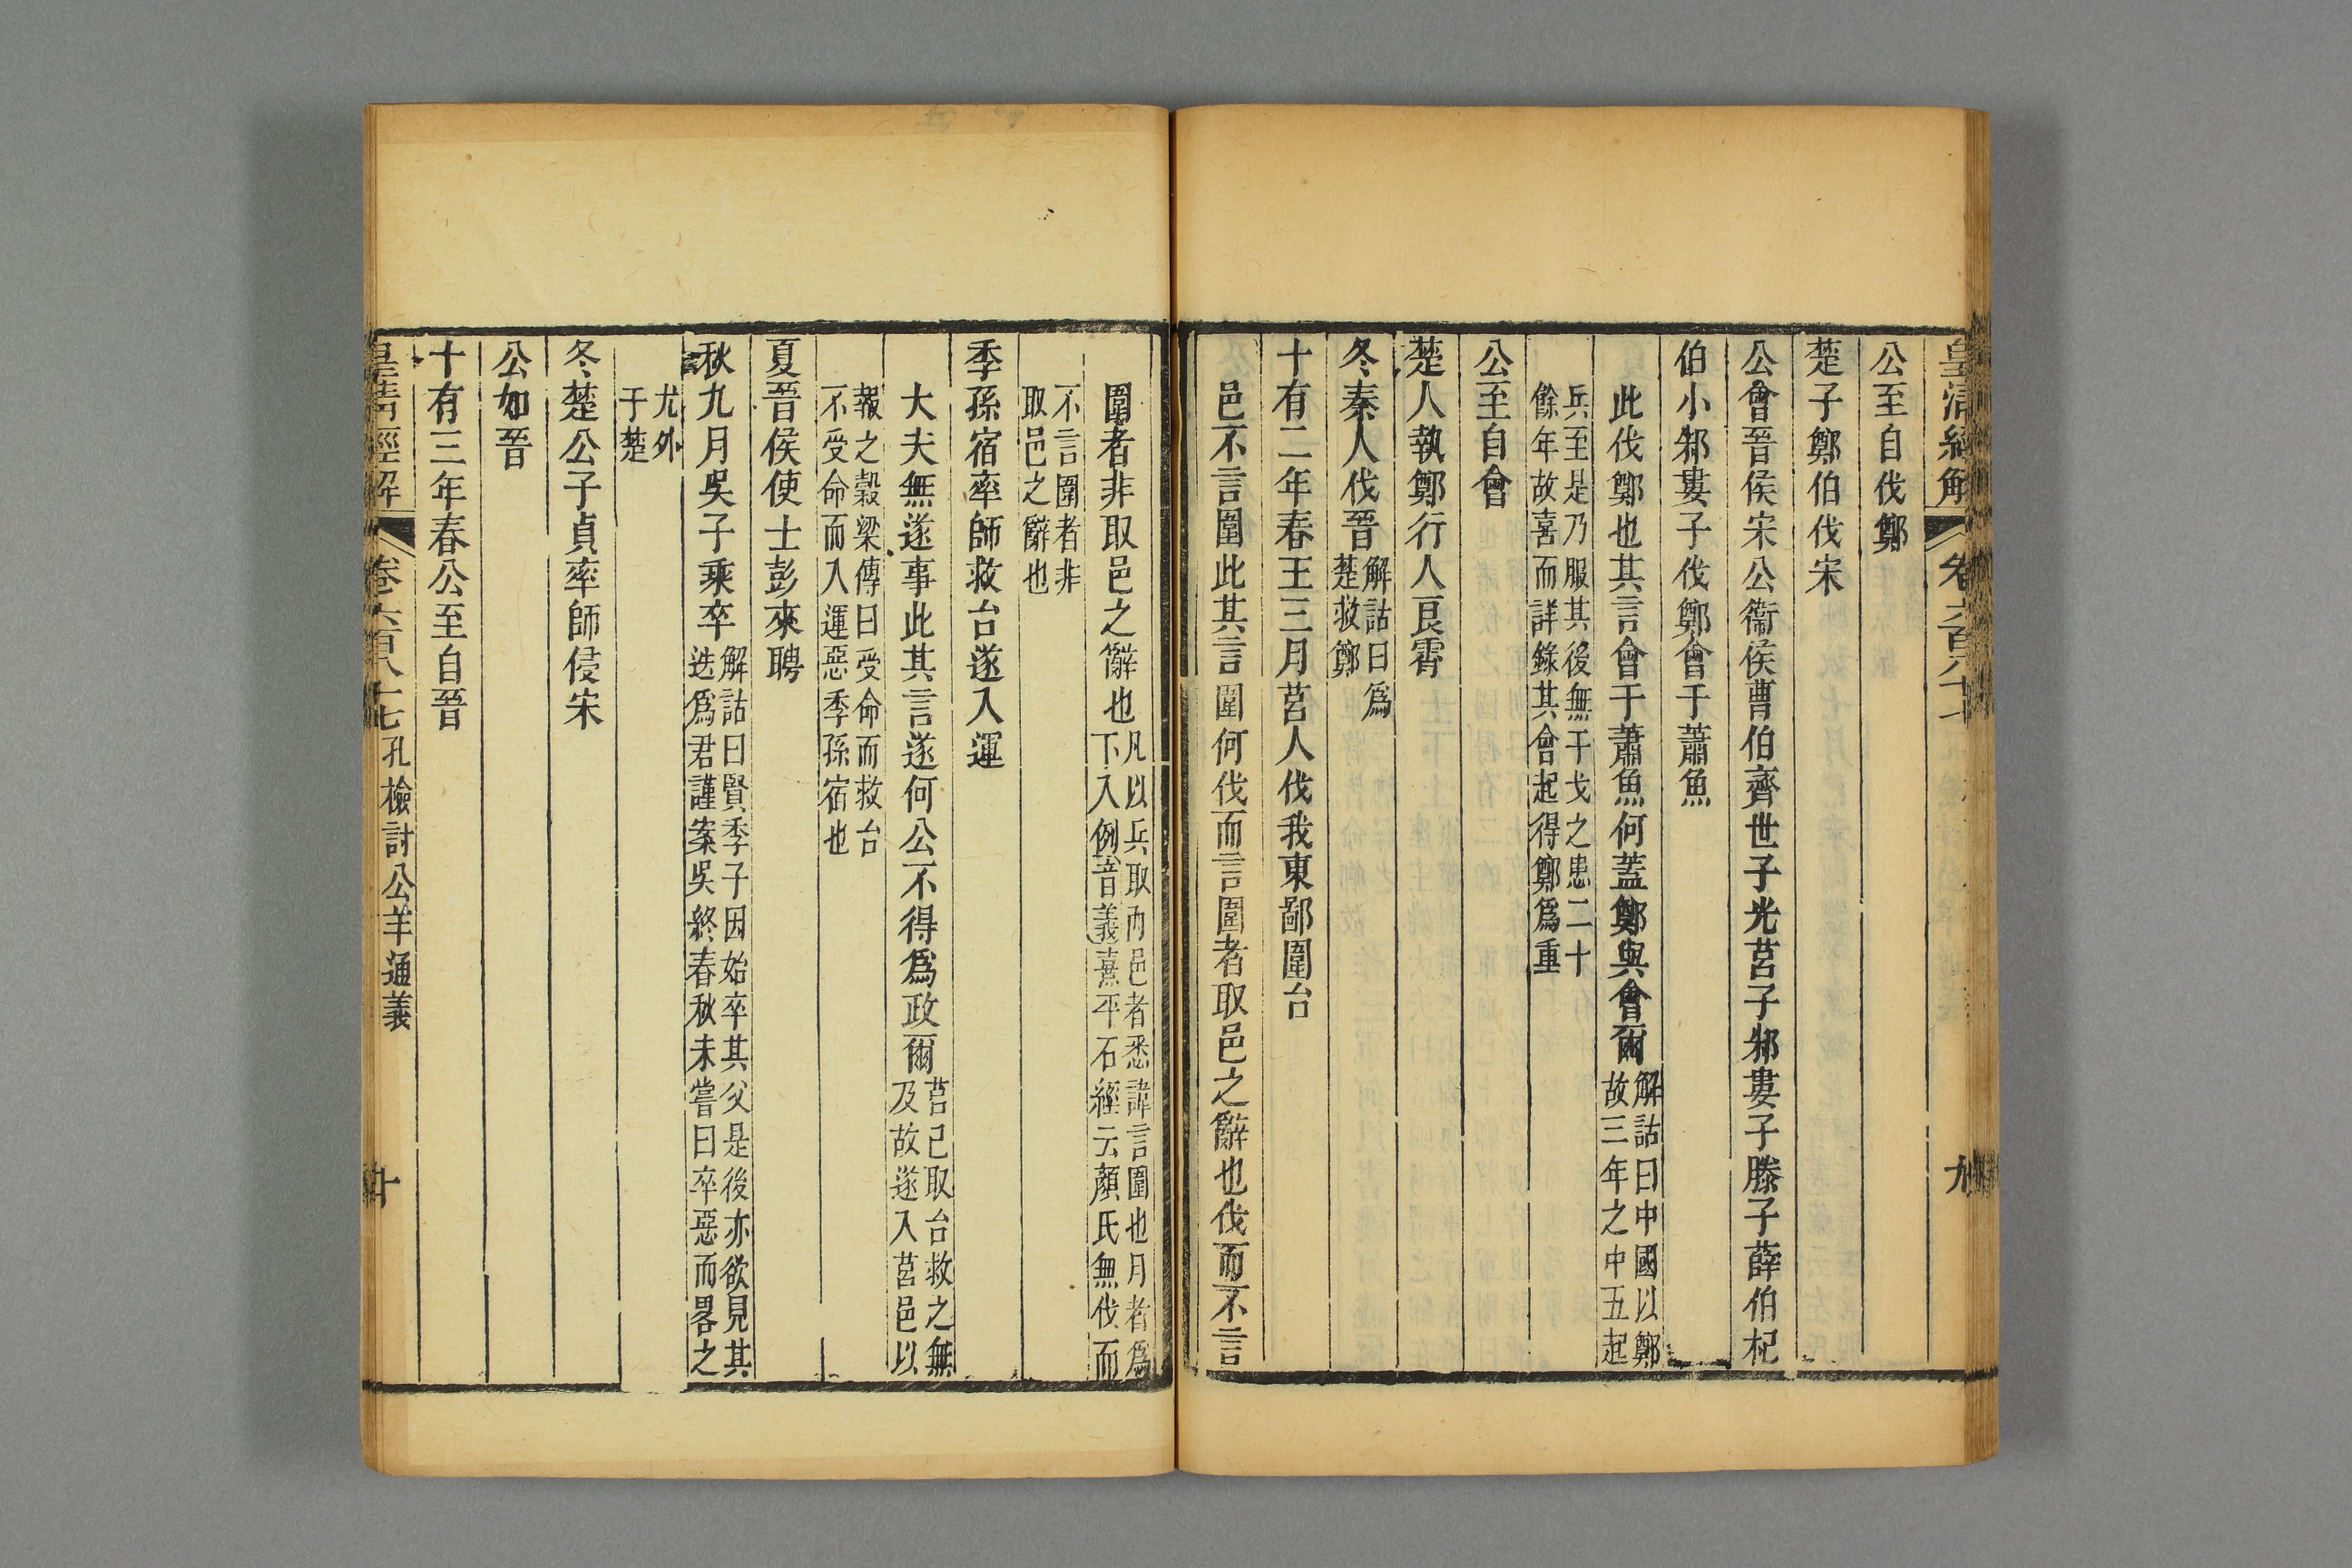 皇清經解 卷六百八十七 九
公至自伐鄭
楚子鄭伯伐宋
公會晉侯宋公衞侯曹伯齊世子光莒子邾婁子滕子薛伯杞
伯小邾婁子伐鄭會于蕭魚
此伐鄭也其言會于蕭魚何蓋鄭與會爾解詁曰中國以鄭
故三年之中五起
兵至是乃服其後無干戈之患二十
餘年故喜而詳錄其會起得鄭爲重
公至自會
楚人執鄭行人良霄
冬秦人伐晉解詁曰爲
楚救鄭
十有二年春王三月莒人伐我東鄙圍台
邑不言圍此其言圍何伐而言圍者取邑之辭也伐而不言
圍者非取邑之辭也凡以兵取內邑者悉諱言圍也月者爲
下入例音義熹平石經云顏氏無伐而
不言圍者非
取邑之辭也
季孫宿率師救台遂入運
大夫無遂事此其言遂何公不得爲政爾莒已取台救之無
及故遂入莒邑以
報之穀梁傳曰受命而救台
不受命而入運惡季孫宿也
夏晉侯使士彭來聘
秋九月吳子乘卒解詁曰賢季子因始卒其父是後亦欲見其
迭爲君謹案吳終春秋未嘗曰卒惡而畧之
尤外
于楚
冬楚公子貞率師侵宋
公如晉
十有三年春公至自晉
皇清經解 卷六百八十七 孔檢討公羊通義 十